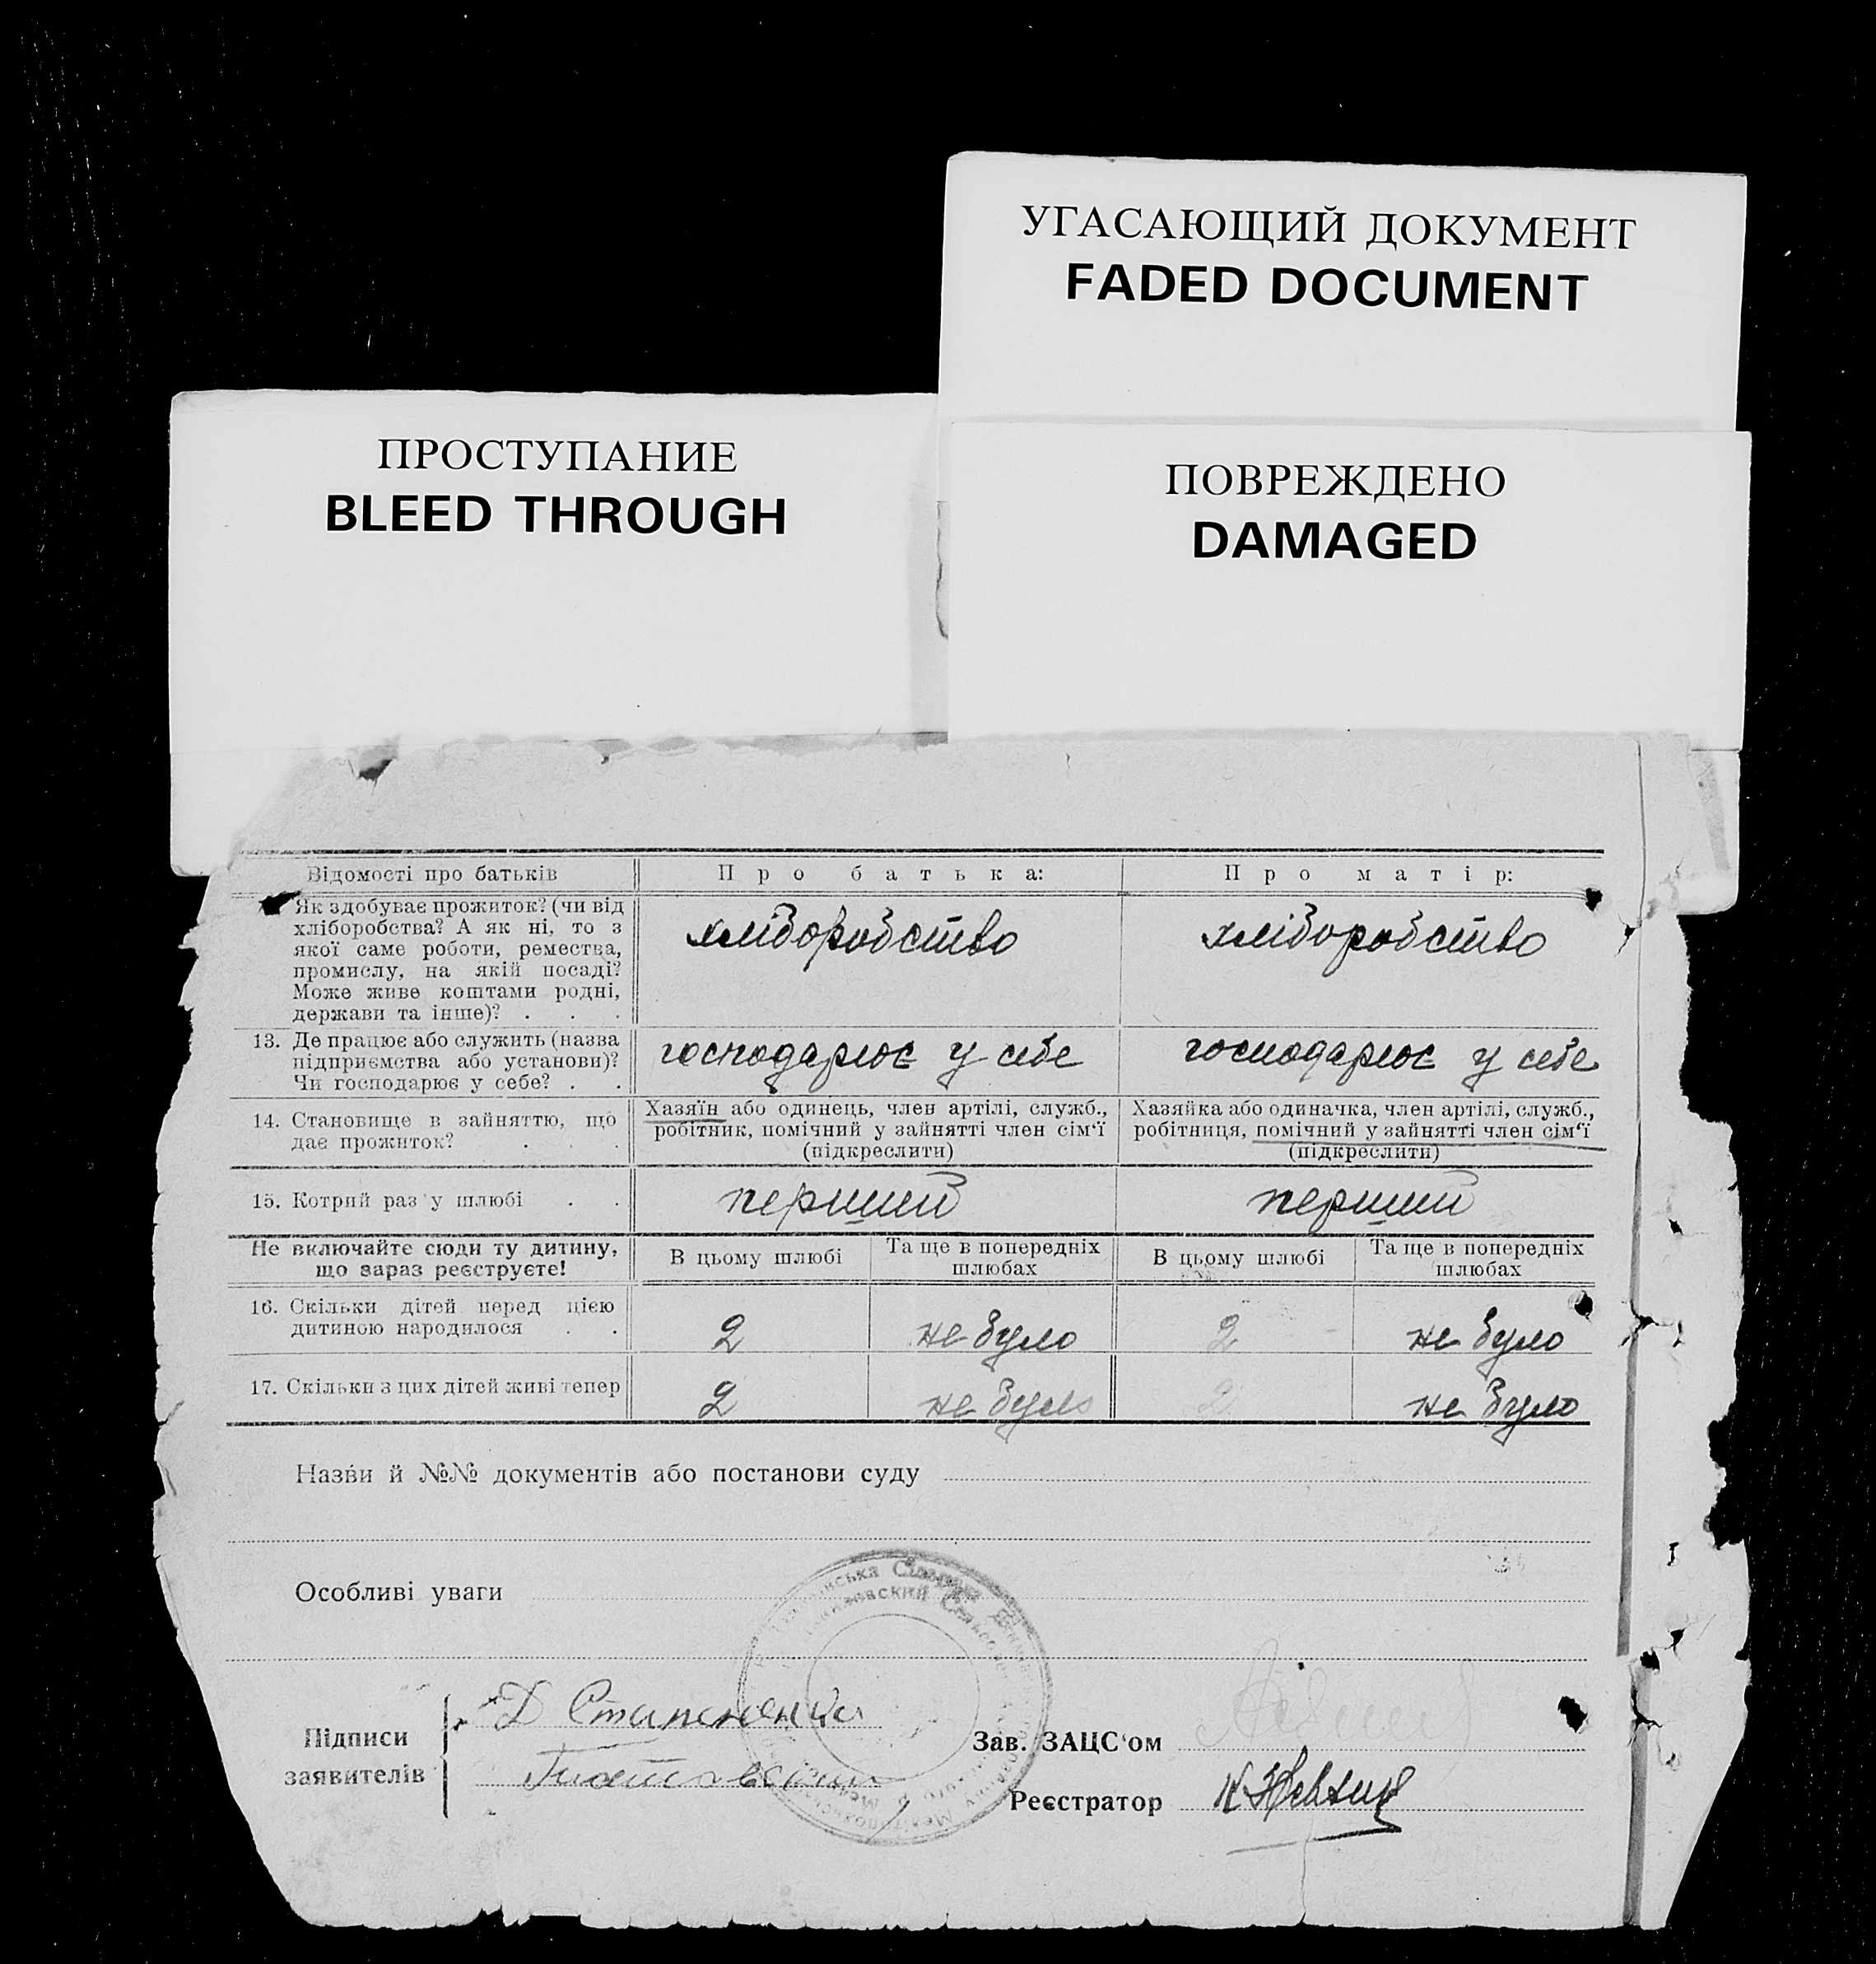 УГАСАЮЩИЙ ДОКУМЕНТ
FADED DOCUMENT
ПРОСТУПАНИЕ
BLEED THROUGH
ПОВРЕЖДЕНО
DAMAGED
Відомості про батьків
Про батька:
Про матір:
Як здобуває прожиток? (чи від
хліборобства? А як ні, то з
якої саме роботи, ремества,
промислу, на якій посаді?
Може живе коштами родні,
держави та інше)? . . .
хліборобство
хліборобство
13. Де працює або служить (назва
підприємства або установи)?
Чи господарює у себе? . .
господарює у себе
господарює у себе
14. Становище в зайняттю, що
дає прожиток? . . .
Хазяїн або одинець, член артілі, служб.,
робітник, помічний у зайнятті член сім'ї
(підкреслити)
Хазяйка або одиначка, член артілі, служб.,
робітниця, помічний у зайнятті член сім'ї
(підкреслити)
15. Котрий раз у шлюбі . .
перший
перший
Не включайте сюди ту дитину,
що зараз реєструєте!
В цьому шлюбі
Та ще в попередніх
шлюбах
В цьому шлюбі
Та ще в попередніх
шлюбах
16. Скільки дітей перед цією
дитиною народилося . .
2
не було
2
не було
17. Скільки з цих дітей живі тепер
2
не було
2
не було
Назви й №№ документів або постанови суду
Особливі уваги
Підписи
заявителів
Д
Зав. ЗАЦС'ом
Реєстратор